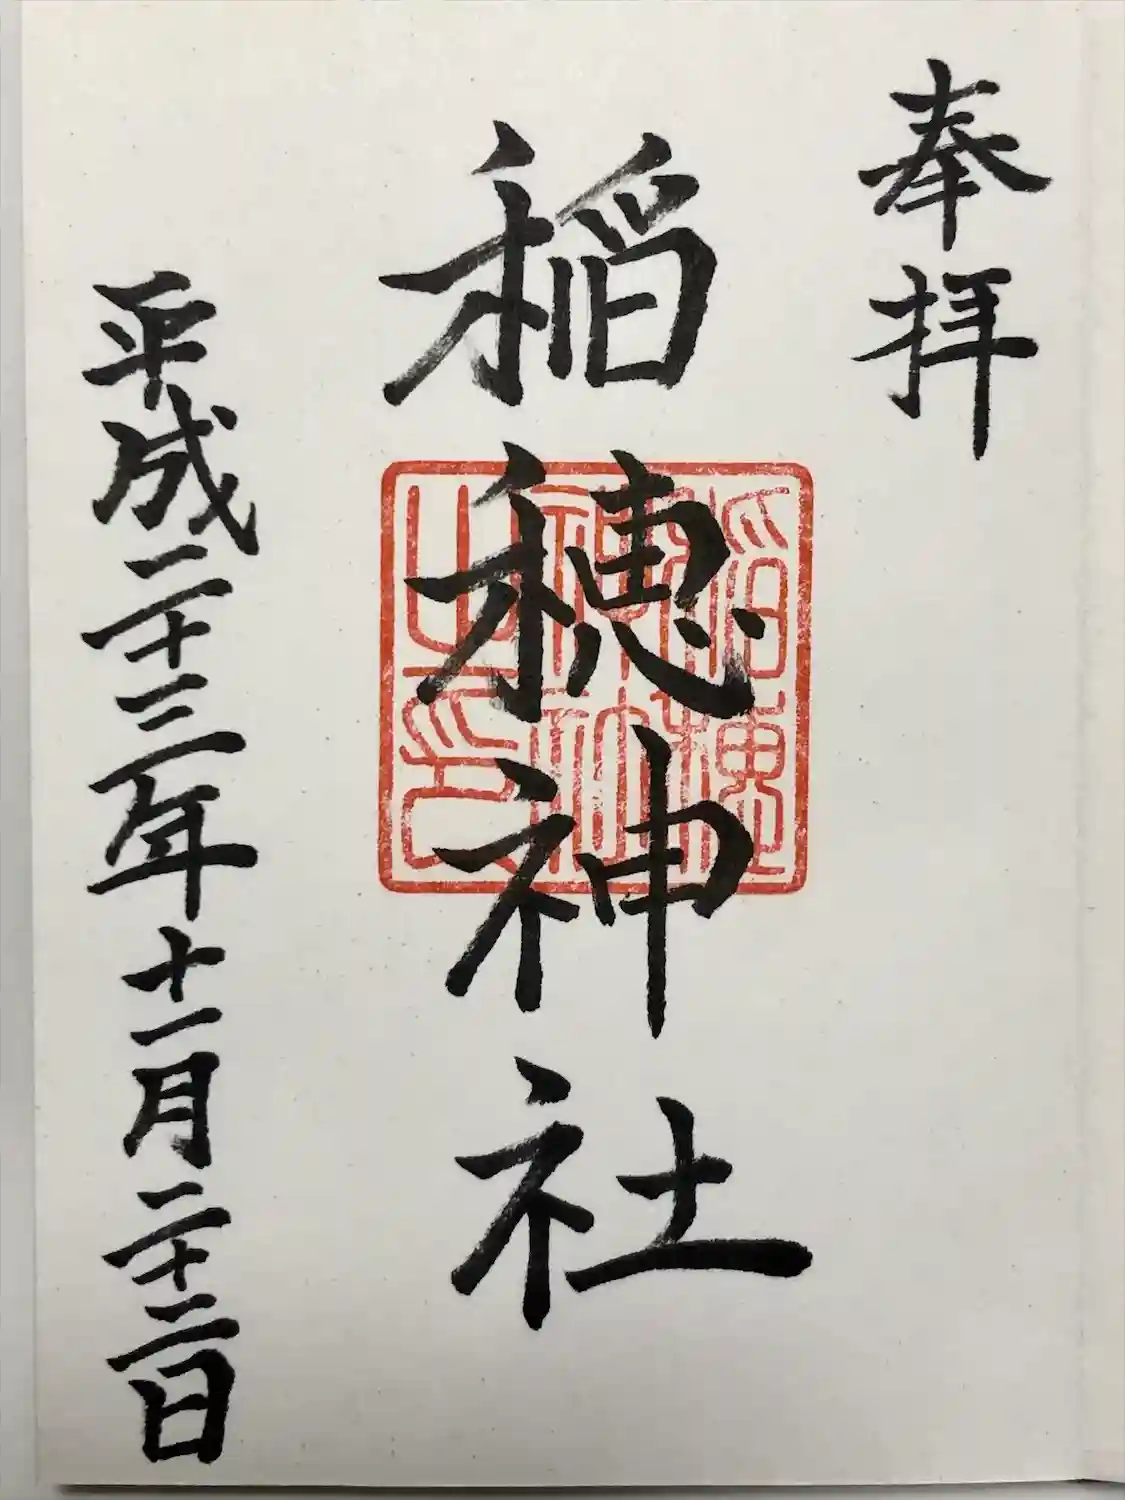 奉拝
稲穂神社
稲穂神社之印
平成二十三年十一月二十三日